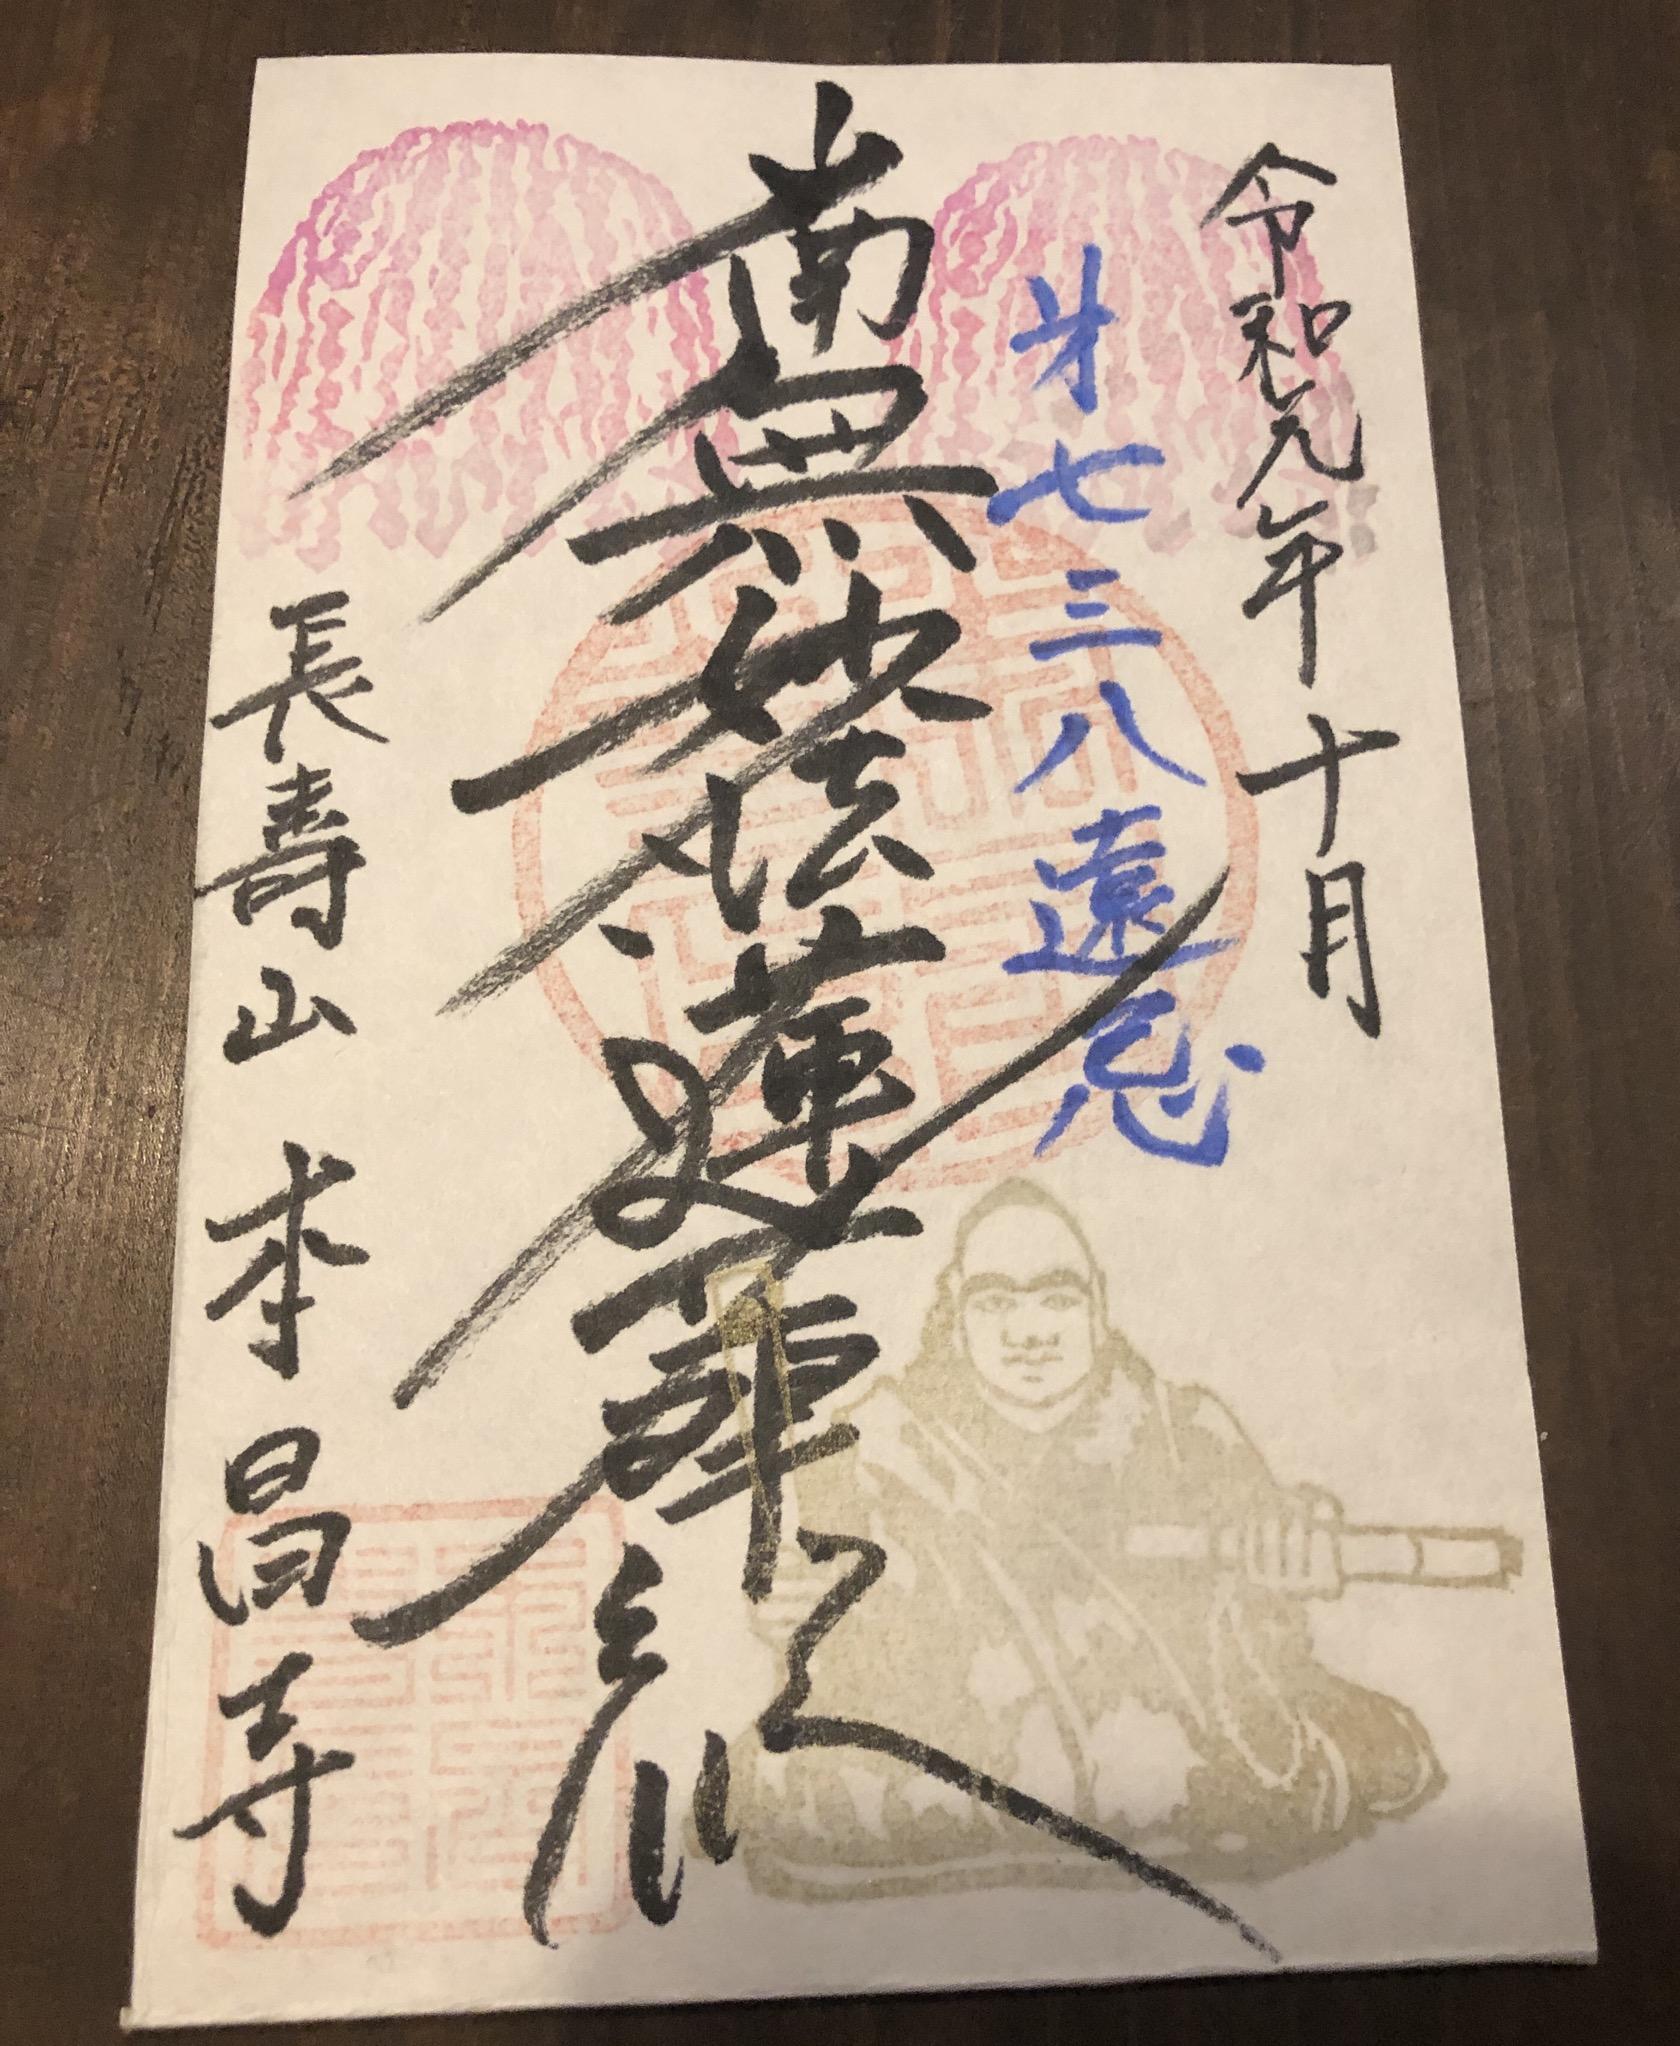 令和元年十月
才七三八遠忌
南無妙法蓮華経
長壽山 本昌寺